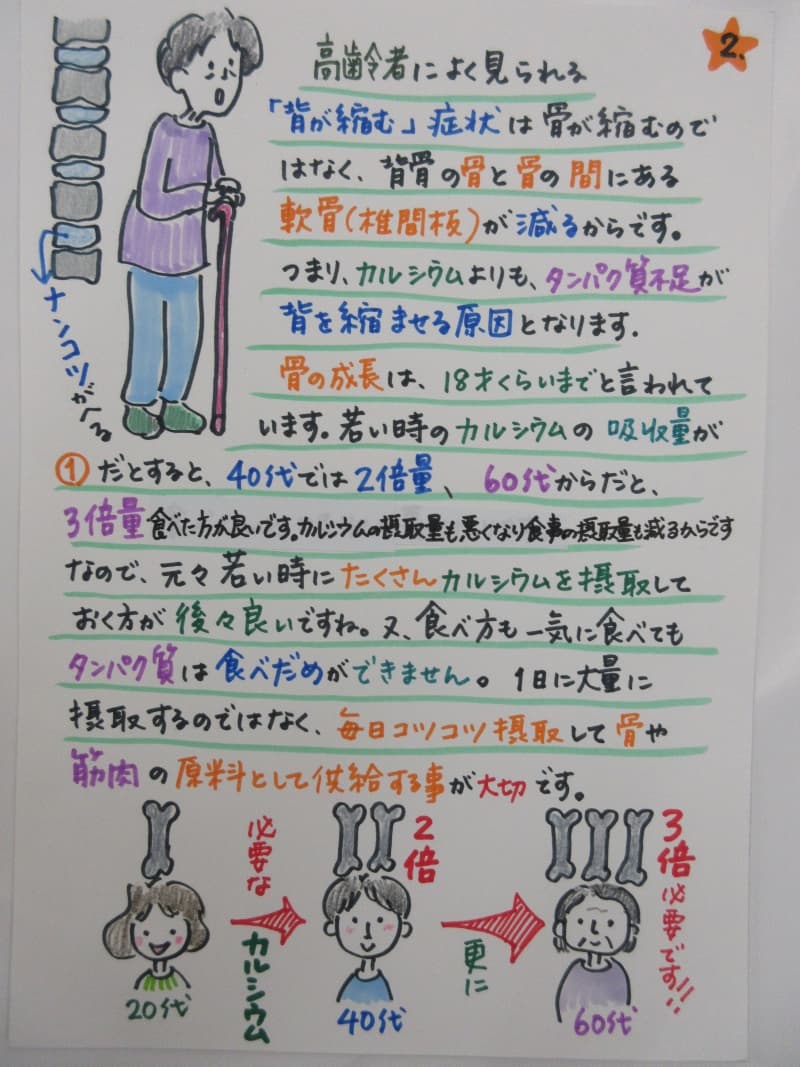 2.
高齢者によく見られる
「背が縮む」症状は骨が縮むので
はなく、背骨の骨と骨の間にある
軟骨(椎間板)が減るからです。
つまり、カルシウムよりも、タンパク質不足が
背を縮ませる原因となります.
骨の成長は、18才くらいまでと言われて
います。若い時のカルシウムの吸収量が
①だとすると、40代では2倍量、60代からだと、
3倍量食べた方が良いです。カルシウムの摂取量も悪くなり食事の摂取量も減るからです
なので、元々若い時にたくさんカルシウムを摂取して
おく方が後々良いですね。又、食べ方も一気に食べても
タンパク質は食べだめができません。1日に大量に
摂取するのではなく、毎日コツコツ摂取して骨や
筋肉の原料として供給する事が大切です。
ナンコツがへる
必要な
カルシウム
2倍
更に
3倍必要です!!
20代
40代
60代